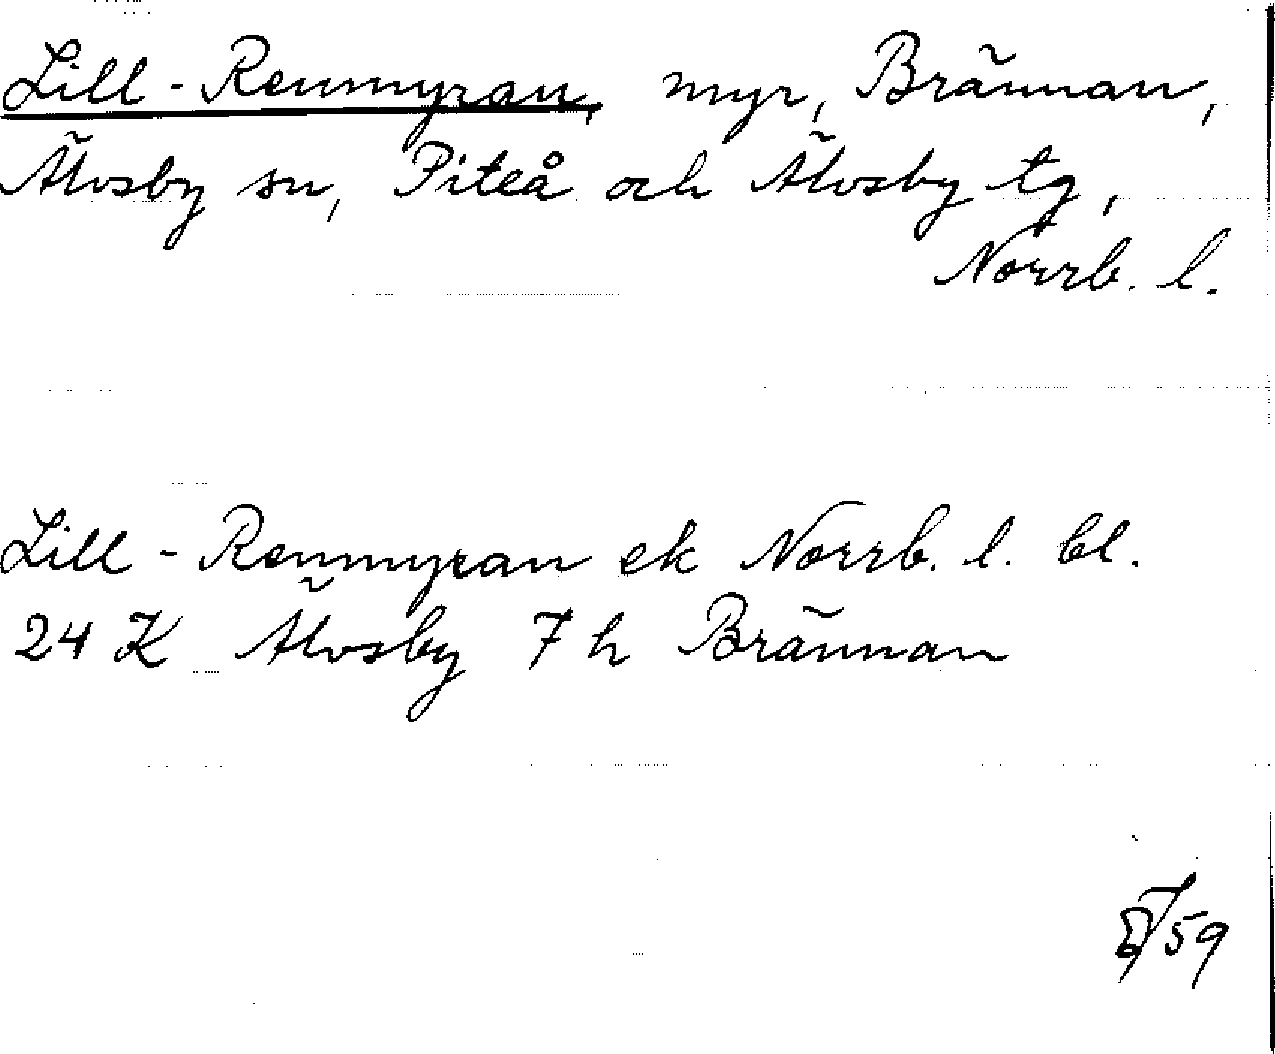 Lill-Renmyran, myr, Brännan,
Älvsby sn, Piteå och Älvsby tg,
Norrb. l.
Lill-Renmyran ek Norrb. l. bl.
24 K Älvsby 7 h Brännan
59